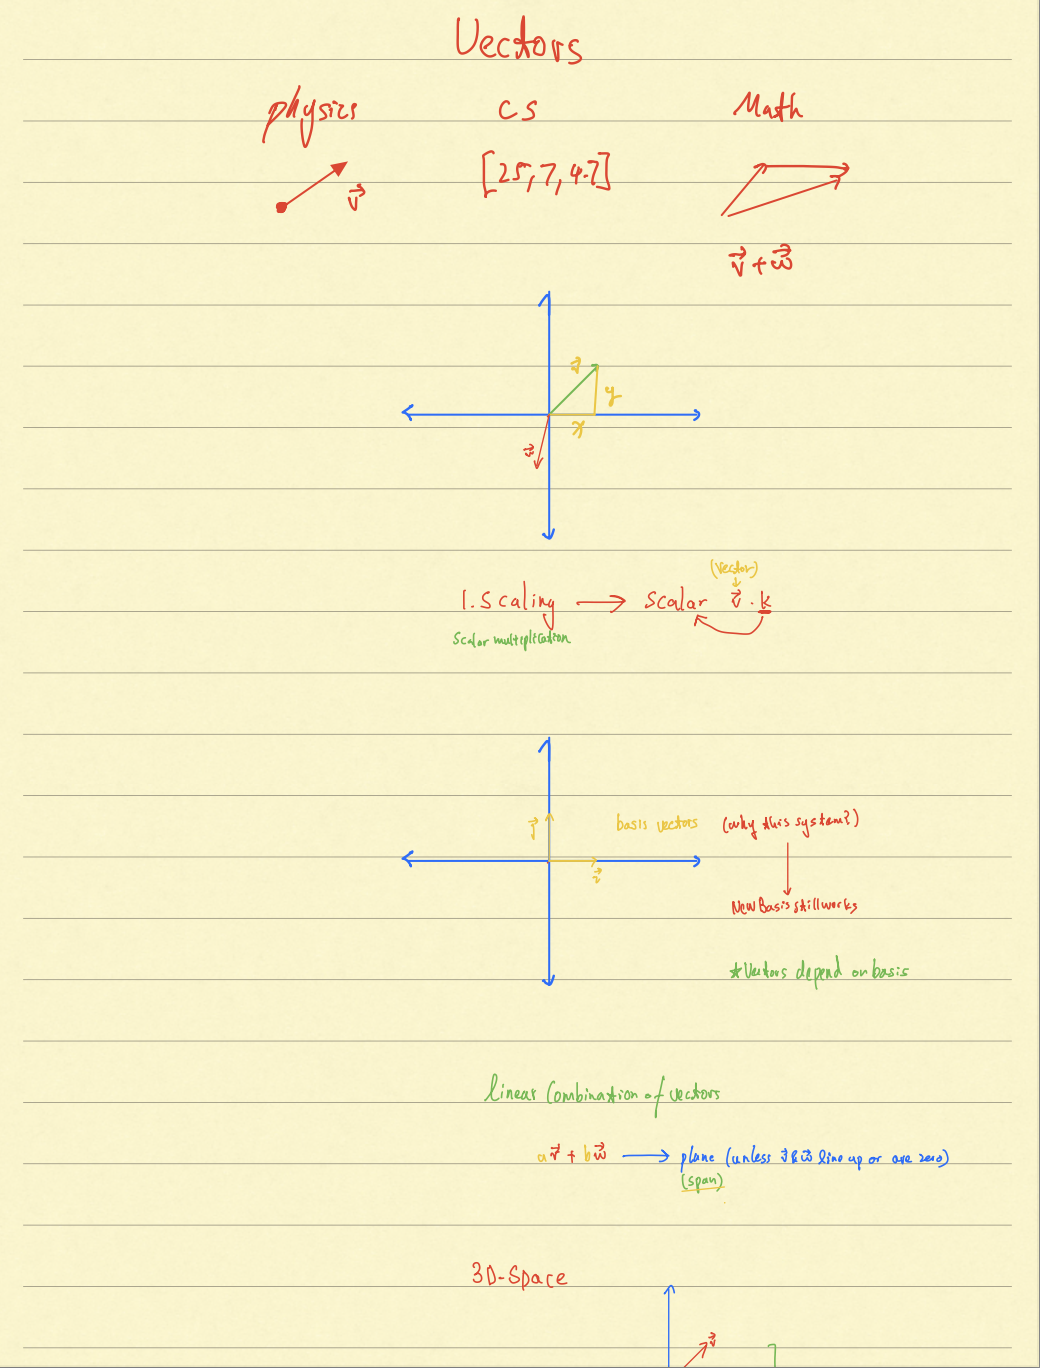 Vectors
physics CS Math
[25, 7, 4.7]
v⃗
v⃗ + w⃗
v⃗
y
x
w⃗
(Vector)
1. Scaling → Scalar v⃗ · k
Scalar multiplication
j⃗ basis vectors (why this system?)
i⃗
New Basis still works
★Vectors depend on basis
linear Combination of vectors
a v⃗ + b w⃗ → plane (unless v⃗ & w⃗ line up or are zero)
(span)
3D-Space
v⃗